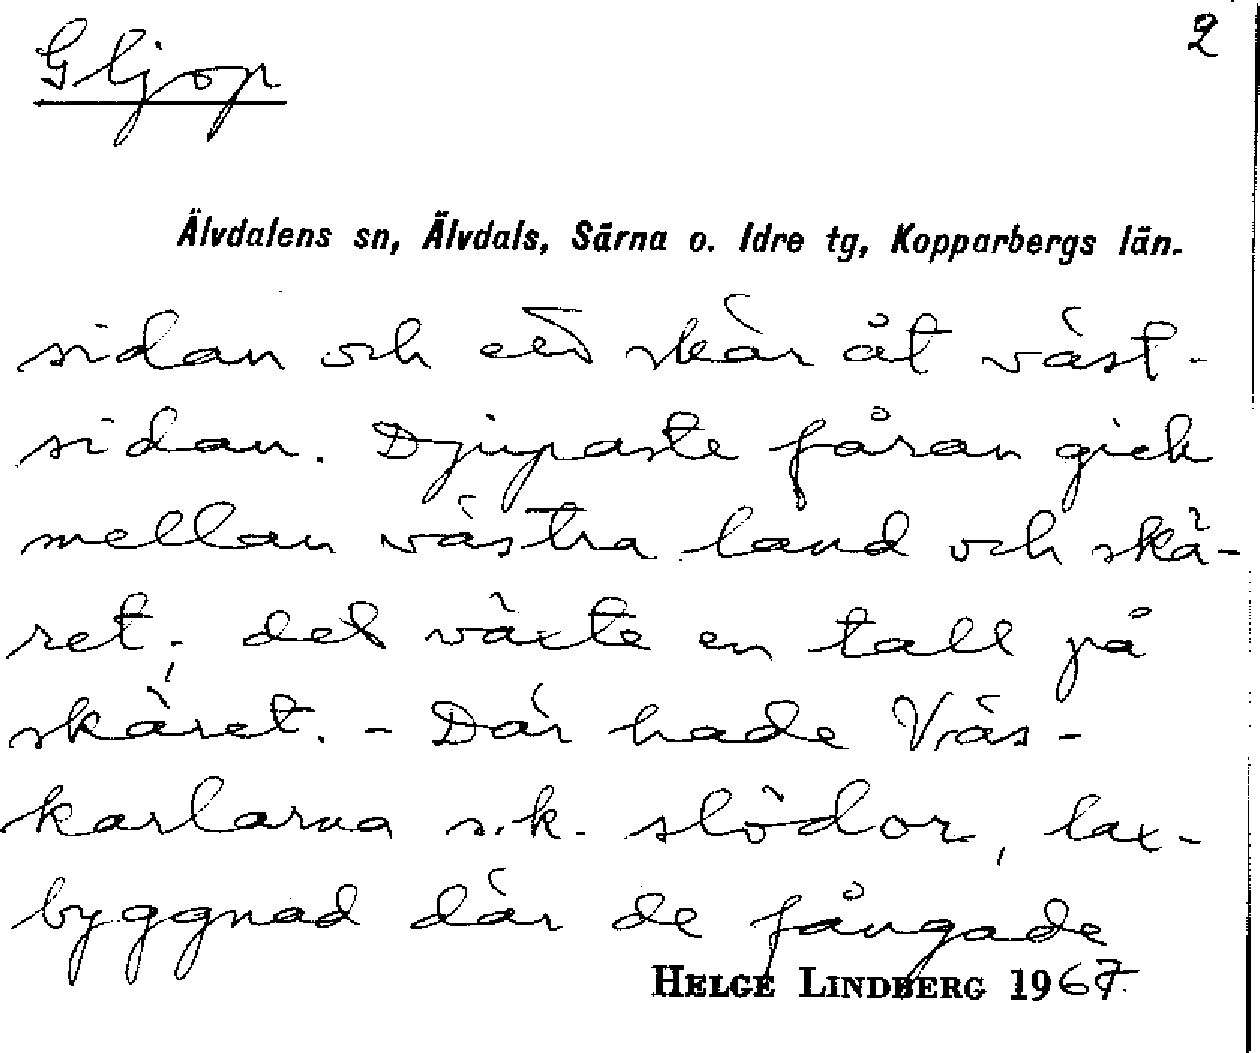 2
Gljop
Älvdalens sn, Älvdals, Särna o. Idre tg, Kopparbergs län.
sidan och ett skär åt väst-
sidan. Djupaste fåran gick
mellan västra land och skä-
ret; det växte en tall på
skäret. - Där hade Väs-
karlarna s.k. slödor, lax-
byggnad där de fångade
HELGE LINDBERG 1967.